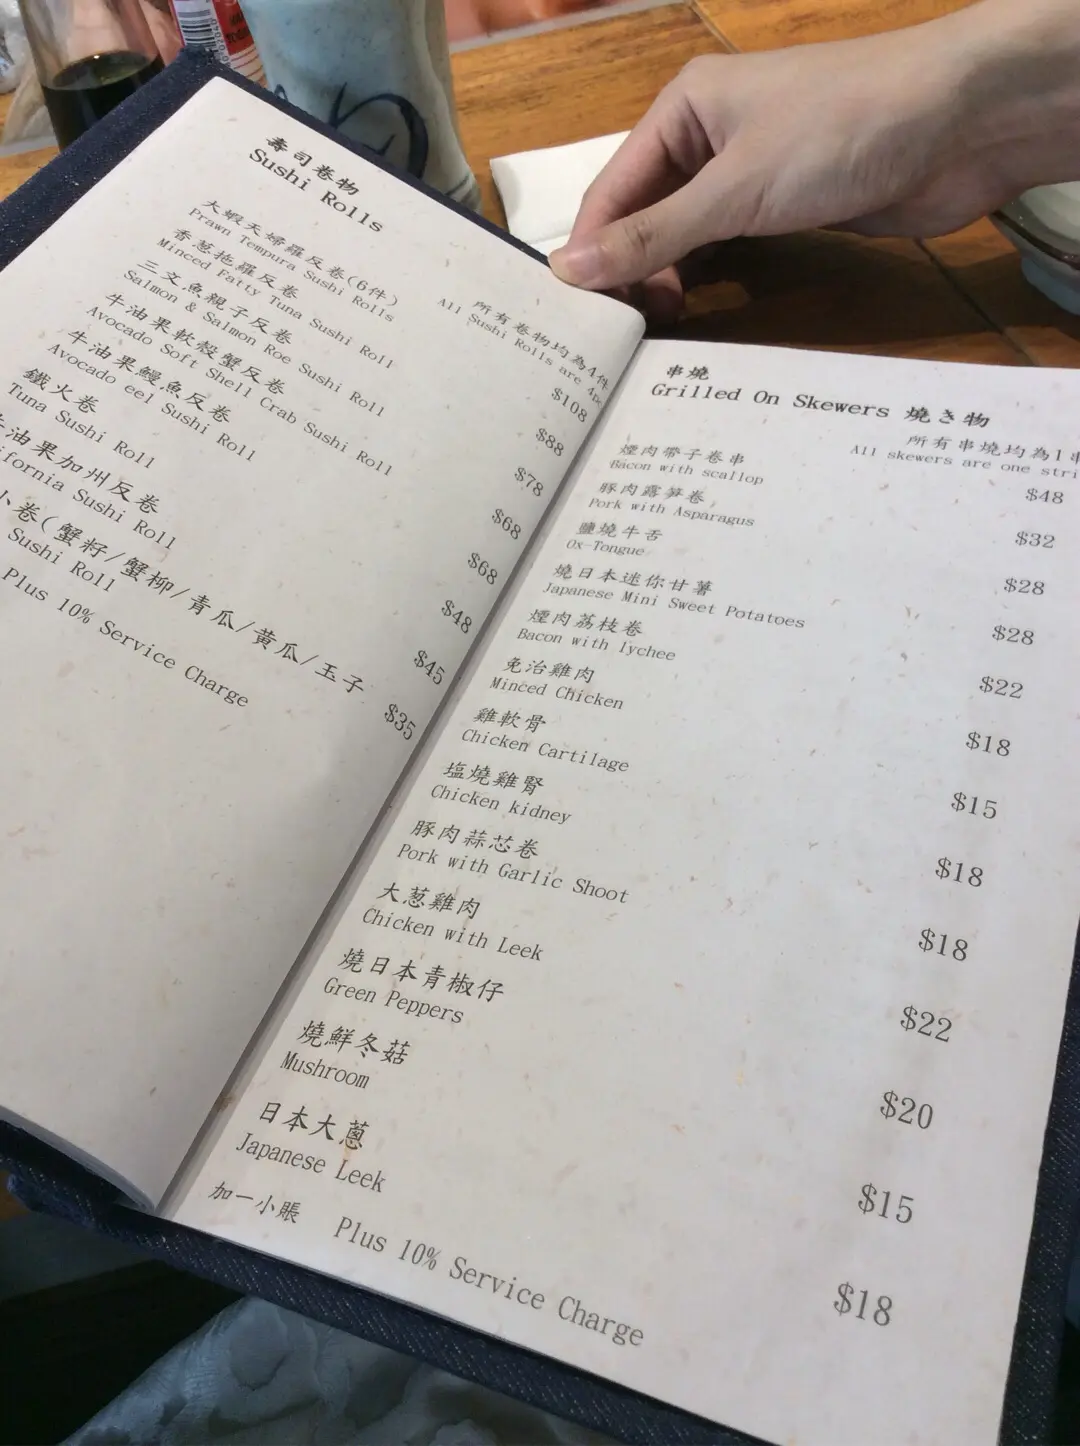 壽司卷物
Sushi Rolls
所有卷物均為4件
All Sushi Rolls are
大蝦天婦羅反卷(6件)
Prawn Tempura Sushi Rolls
$108
香蔥拖羅反卷
Minced Fatty Tuna Sushi Roll
$88
三文魚親子反卷
Salmon & Salmon Roe Sushi Roll
$78
牛油果軟殼蟹反卷
Avocado Soft Shell Crab Sushi Roll
$68
牛油果鰻魚反卷
Avocado eel Sushi Roll
$68
鐵火卷
Tuna Sushi Roll
$48
牛油果加州反卷
ifornia Sushi Roll
$45
小卷(蟹籽/蟹柳/青瓜/黃瓜/玉子
Sushi Roll
$35
Plus 10% Service Charge
串燒
Grilled On Skewers 燒き物
所有串燒均為1串
All skewers are one stri
煙肉帶子卷串
Bacon with scallop
$48
豚肉露笋卷
Pork with Asparagus
$32
鹽燒牛舌
Ox-Tongue
$28
燒日本迷你甘薯
Japanese Mini Sweet Potatoes
$28
煙肉荔枝卷
Bacon with lychee
$22
免治雞肉
Minced Chicken
$18
雞軟骨
Chicken Cartilage
$15
塩燒雞腎
Chicken kidney
$18
豚肉蒜芯卷
Pork with Garlic Shoot
$18
大葱雞肉
Chicken with Leek
$22
燒日本青椒仔
Green Peppers
$20
燒鮮冬菇
Mushroom
$15
日本大蔥
Japanese Leek
$18
加一小賬 Plus 10% Service Charge